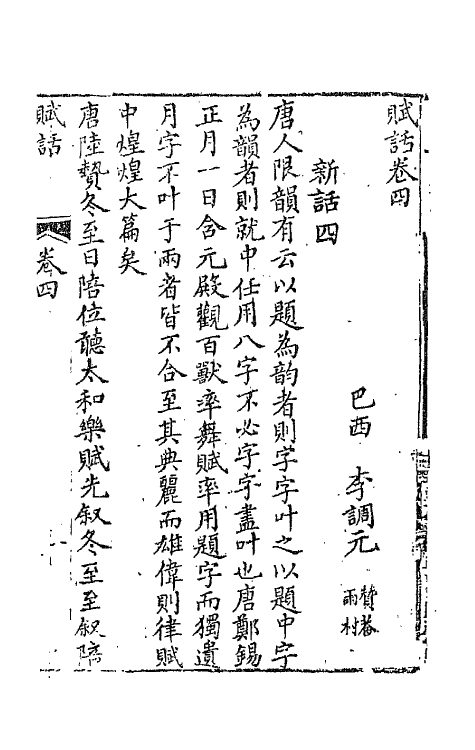 賦話卷四
巴西 李調元 贊菴 雨村
新話四
唐人限韻有云以題為韵者則字字叶之以題中字
為韻者則就中任用八字不必字字盡叶也唐鄭錫
正月一日含元殿觀百獸率舞賦率用題字而獨遺
月字不叶于兩者皆不合至其典麗而雄偉則律賦
中煌煌大篇矣
唐陸贄冬至日陪位聽太和樂賦先敘冬至至敘陪
賦話 卷四 一